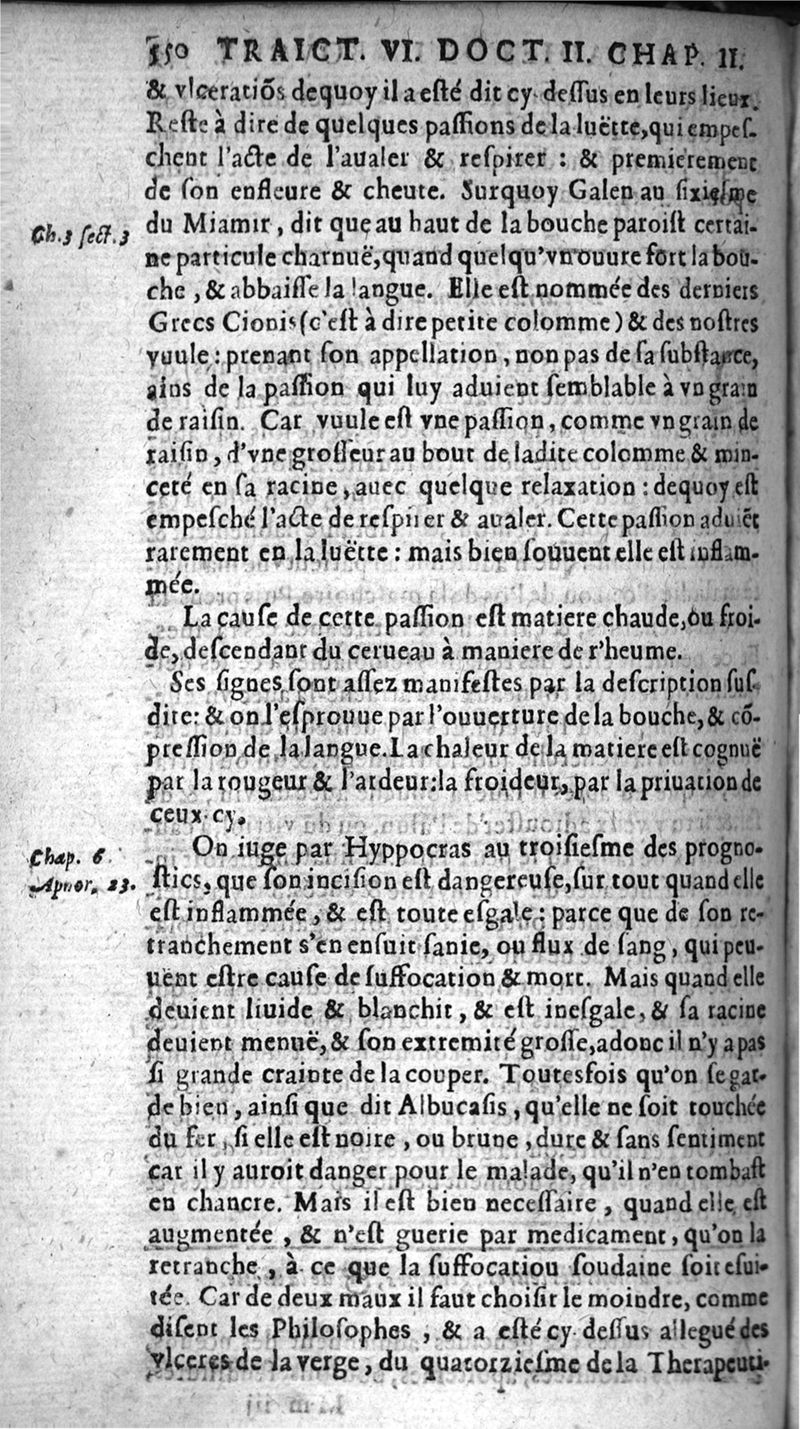 550 TRAICT. VI. DOCT. II. CHAP. II.
& vlceratiõs dequoy il a esté dit cy dessus en leurs lieux.
Reste à dire de quelques passions de la luëtte, qui empes-
chent l'acte de l'aualer & respirer : & premierement
de son enfleure & cheute. Surquoy Galen au sixiesme
Ch. 3 sect. 3
du Miamir, dit que au haut de la bouche paroist certai-
ne particule charnuë, quand quelqu'vn ouure fort la bou-
che, & abbaisse la langue. Elle est nommée des derniers
Grecs Cionis (c'est à dire petite colomme) & des nostres
vuule : prenant son appellation, non pas de sa substance,
ains de la passion qui luy aduient semblable à vn grain
de raisin. Car vuule est vne passion, comme vn grain de
raisin, d'vne grosseur au bout de ladite colomme & min-
ceté en sa racine, auec quelque relaxation : dequoy est
empesché l'acte de respirer & aualer. Cette passion aduiẽt
rarement en la luëtte : mais bien souuent elle est inflam-
mée.
La cause de cette passion est matiere chaude, ou froi-
de, descendant du cerueau à maniere de r'heume.
Ses signes sont assez manifestes par la description sus-
dite: & on l'esprouue par l'ouuerture de la bouche, & cõ-
pression de la langue. La chaleur de la matiere est cognuë
par la rougeur & l'ardeur: la froideur, par la priuation de
ceux cy.
Chap. 6
On iuge par Hyppocras au troisiesme des progno-
Aphor. 23.
stics, que son incision est dangereuse, sur tout quand elle
est inflammée, & est toute esgale : parce que de son re-
tranchement s'en ensuit sanie, ou flux de sang, qui peu-
uent estre cause de suffocation & mort. Mais quand elle
deuient liuide & blanchit, & est inesgale, & sa racine
deuient menuë, & son extremité grosse, adonc il n'y a pas
si grande crainte de la couper. Toutesfois qu'on se gar-
de bien, ainsi que dit Albucasis, qu'elle ne soit touchée
du fer, si elle est noire, ou brune, dure & sans sentiment
car il y auroit danger pour le malade, qu'il n'en tombast
en chancre. Mais il est bien necessaire, quand elle est
augmentée, & n'est guerie par medicament, qu'on la
retranche, à ce que la suffocatiou soudaine soit esui-
tée. Car de deux maux il faut choisir le moindre, comme
disent les Philosophes, & a esté cy dessus allegué des
vlceres de la verge, du quatorziesme de la Therapeuti-